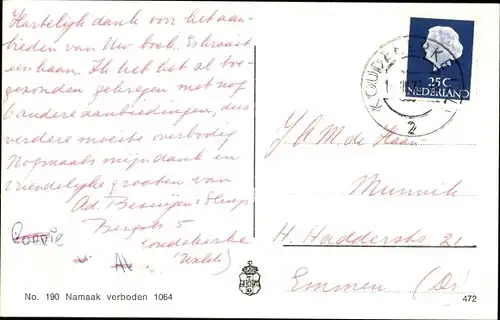 Hartelijk dank voor het aan-
bieden van Uw boek. Er kraait
een haan. Ik heb het al toe-
gezonden gekregen met nog
6 andere aanbiedingen, dus
verdere moeite overbodig
Nogmaals mijn dank en
vriendelijke groeten van
Ad.
5
Koudekerke
(Walch)
No. 190 Namaak verboden 1064
25C
NEDERLAND
KOUDEKERKE
2
J A M de Haan
Munnik
H. 21
Emmen (Dr)
472